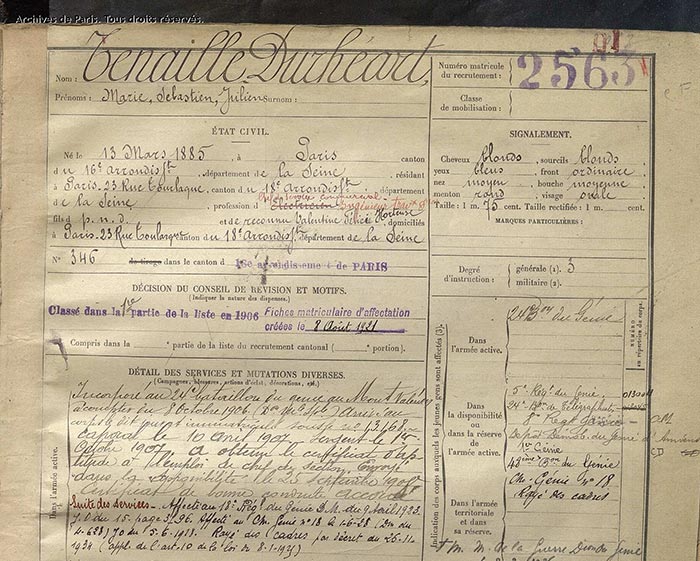 Archives de Paris. Tous droits réservés.
Nom : Tenaille Durhéart,
Prénoms : Marie, Sébastien, Julien Surnom :
Numéro matricule du recrutement : 2563
Classe de mobilisation :
ÉTAT CIVIL.
Né le 13 Mars 1885, à Paris canton
du 16e arrondisst, département de la Seine, résidant
à Paris-23 Rue Tourlaque, canton du 18e arrondisst, département
de la Seine, profession d
fils d p. n. d. et de reconnu Valentine Félicie Hortense, domiciliés
à Paris-23 Rue Tourlaque canton du 18e arrondisst, département de la Seine
N° 346 de tirage dans le canton d 16e arrondissement de PARIS
SIGNALEMENT.
Cheveux blonds, sourcils blonds
yeux bleus front ordinaire
nez moyen, bouche moyenne
menton rond, visage ovale
Taille : 1 m. 75 cent. Taille rectifiée : 1 m. cent.
MARQUES PARTICULIÈRES :
Degré d'instruction : générale (1). 3
militaire (2).
DÉCISION DU CONSEIL DE RÉVISION ET MOTIFS.
(Indiquer la nature des dispenses.)
Classé dans la 1re partie de la liste en 1906
Fiches matriculaire d'affectation
créées le 8 Août 1921
Compris dans la partie de la liste du recrutement cantonal ( portion).
DÉTAIL DES SERVICES ET MUTATIONS DIVERSES.
(Campagnes, blessures, actions d'éclat, décorations, etc.)
Dans l'armée active.
Incorporé au 24e bataillon du génie au Mont Valérien
à compter du 8 Octobre 1906
corps le dit jour immatriculé sous le n°
caporal le 10 avril 1907 Sergent le 1er
Octobre 1907 a obtenu le certificat d'ap-
titude à l'emploi de chef de section. Envoyé
dans la disponibilité le 25 septembre 1908
certificat de bonne conduite accordé
Suite des services - Affecté au 18e Rég. du Génie D.M. du 9 avril 1923.
Affecté au Ch. Génie n° 18 le 1-6-28
Rayé des cadres par décret du 26-11
1934 (appl. de l'art. 10 de la loi du 8-1-1925)
Indication des corps auxquels les jeunes gens sont affectés (3).
NUMÉRO au répertoire du corps.
Dans l'armée active. 24e Bon du Génie
Dans la disponibilité ou dans la réserve de l'armée active.
5e Régt du Génie
24e Bon de Télégraphistes
8e Régt Génie
1er Génie
Ch. Génie n° 18
Rayé des cadres
Dans l'armée territoriale et dans sa réserve.